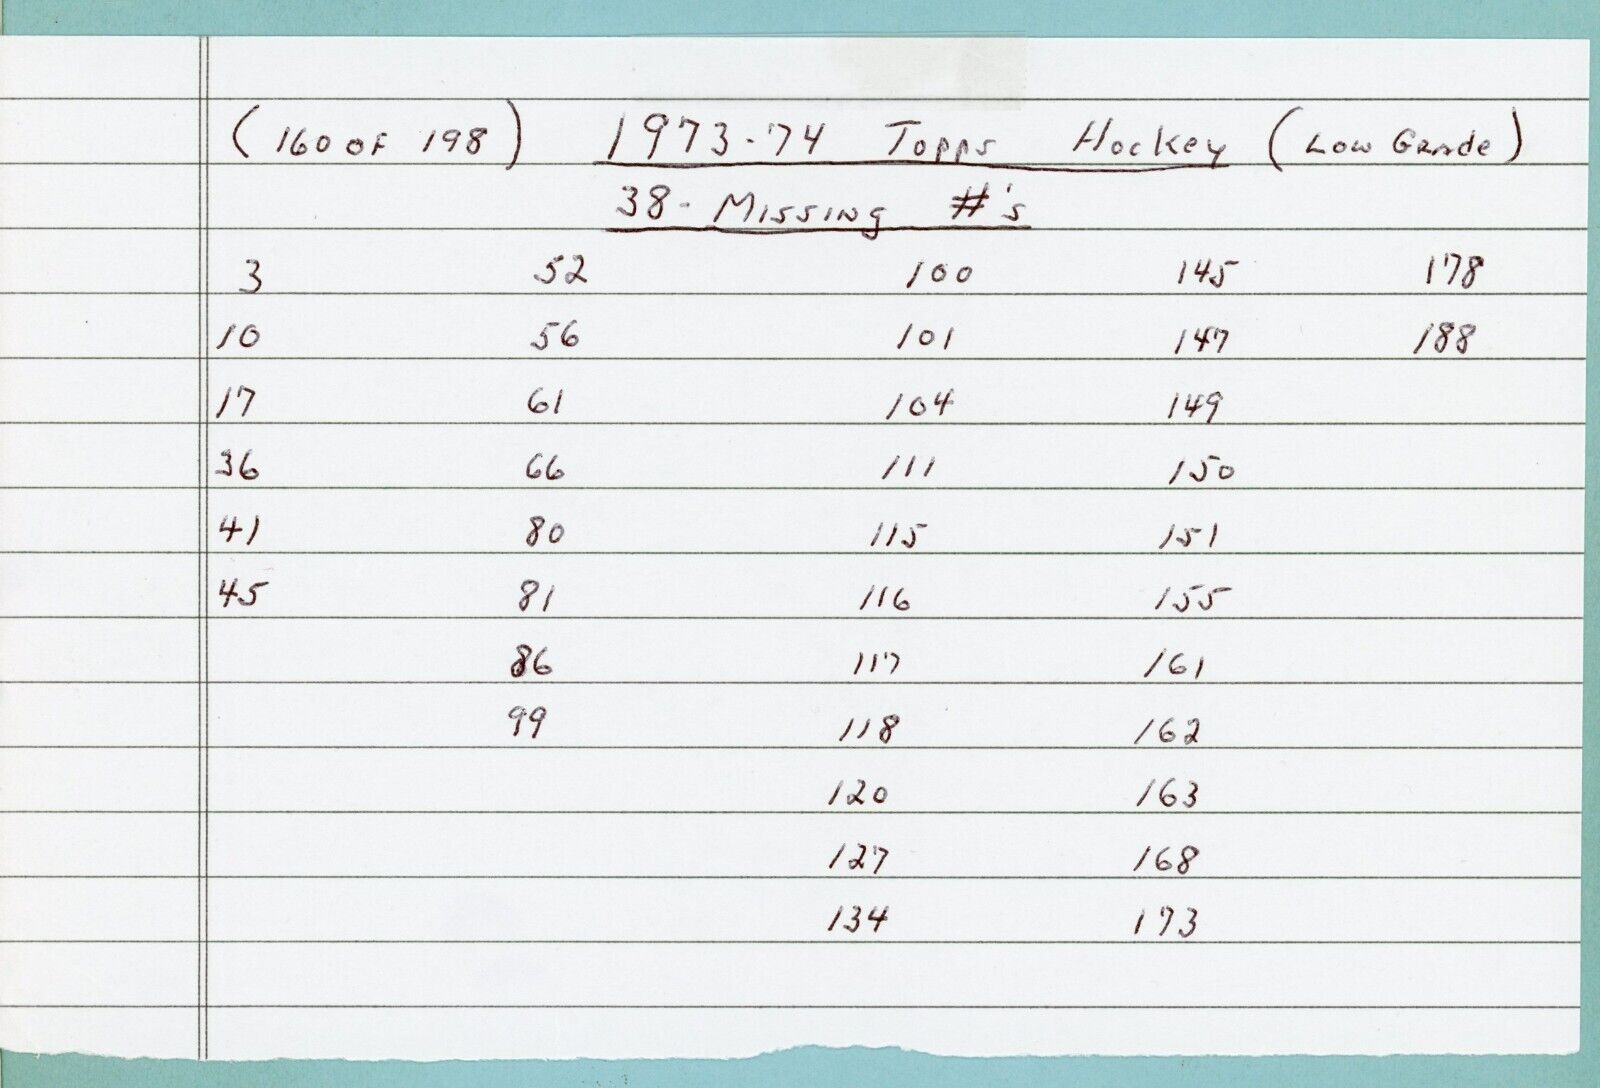 (160 OF 198) 1973-'74 Topps Hockey (Low Grade)
38- Missing #'s
3 52 100 145 178
10 56 101 147 188
17 61 104 149
36 66 111 150
41 80 115 151
45 81 116 155
86 117 161
99 118 162
120 163
127 168
134 173